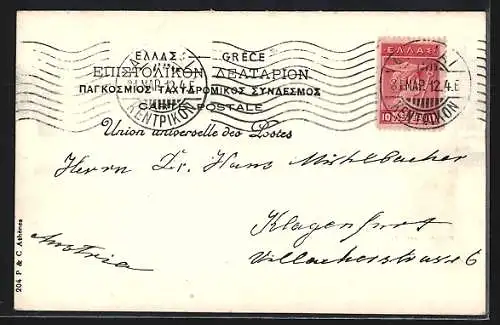 ΕΛΛΑΣ — GRÈCE
ΕΠΙΣΤΟΛΙΚΟΝ ΔΕΛΤΑΡΙΟΝ
ΠΑΓΚΟΣΜΙΟΣ ΤΑΧΥΔΡΟΜΙΚΟΣ ΣΥΝΔΕΣΜΟΣ
CARTE POSTALE
Union universelle des Postes
ΕΛΛΑΣ
10
ΚΕΝΤΡΙΚΟΝ
ΜΑΡ. 12.4.Ε
ΚΕΝΤΡΙΚΟΝ
Herrn Dr. Hans Michlbacher
Klagenfurt
Villacherstrasse 6
Austria
204 P & C Athènes